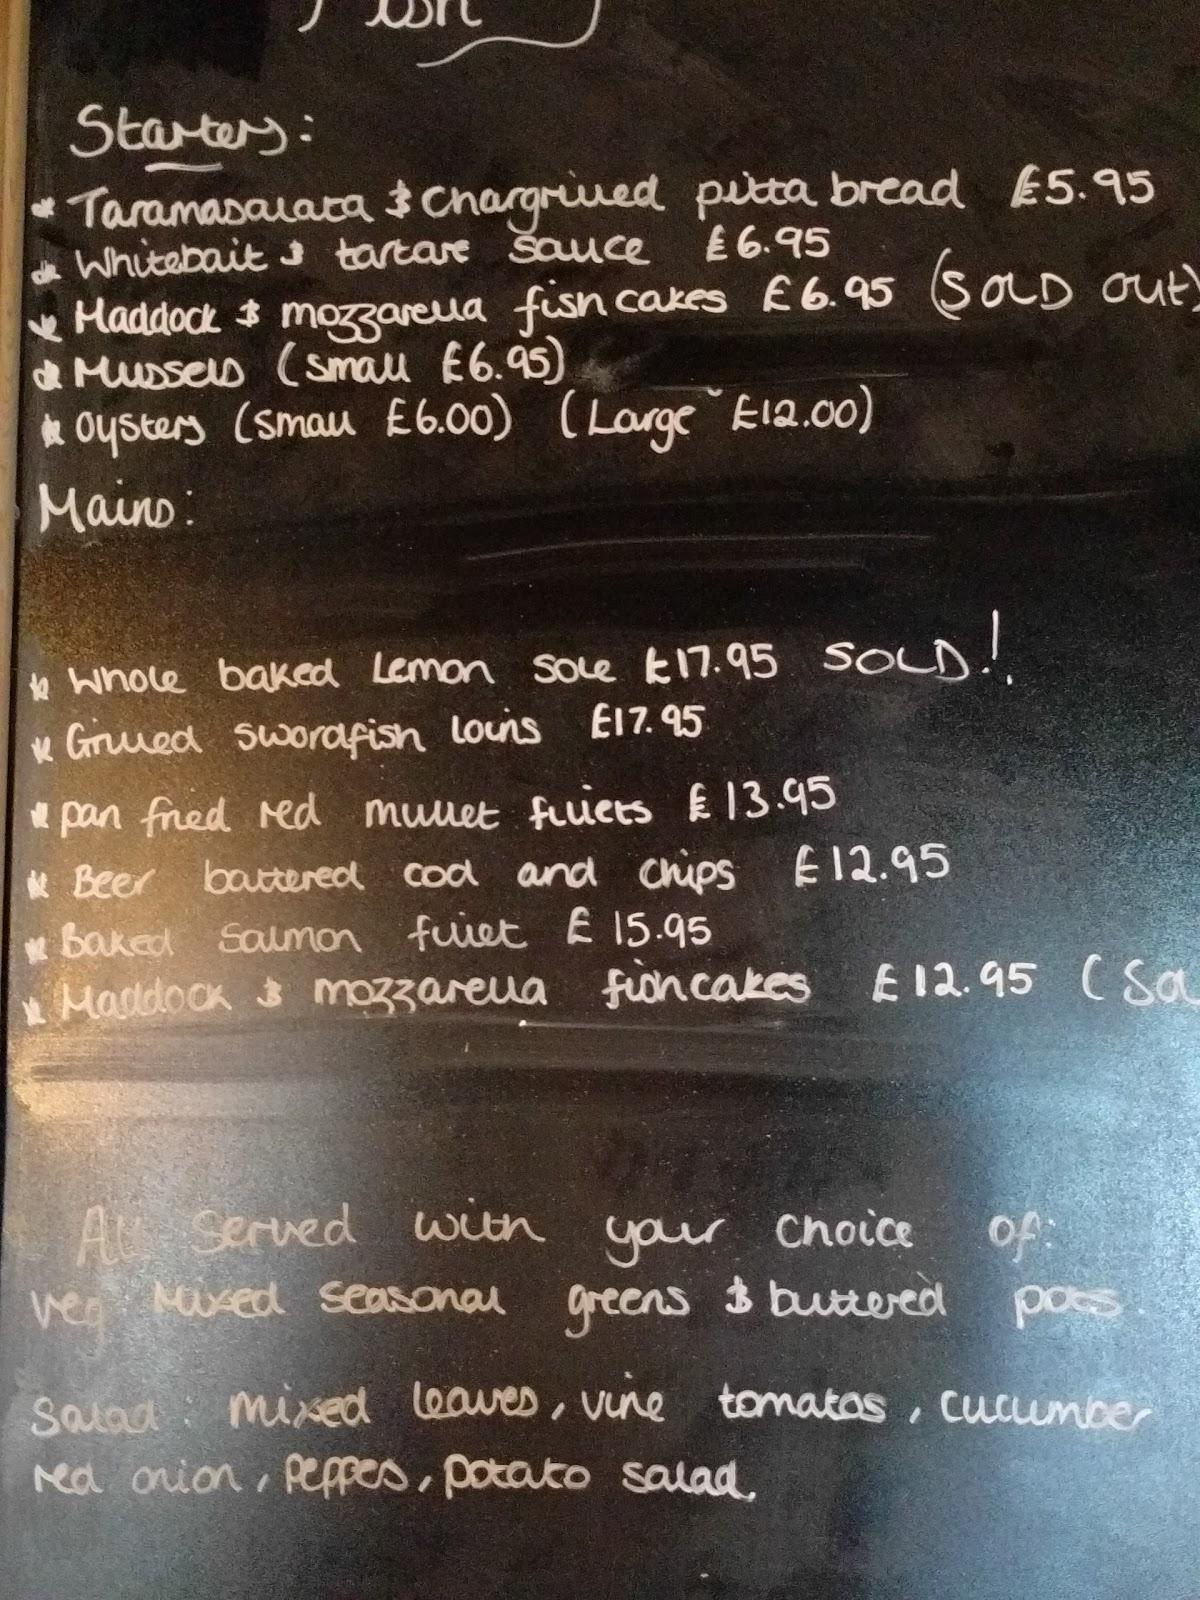 Starters:
* Taramasalata & chargrilled pitta bread £5.95
* Whitebait & tartare sauce £6.95
* Haddock & mozzarella fishcakes £6.95 (SOLD OUT)
* Mussels (small £6.95)
* Oysters (small £6.00) (Large £12.00)
Mains:
* Whole baked Lemon sole £17.95 SOLD!
* Grilled swordfish loins £17.95
* pan fried red mullet fillets £13.95
* Beer battered cod and chips £12.95
* Baked Salmon fillet £15.95
* Haddock & mozzarella fishcakes £12.95 (So
All served with your choice of:
veg: Mixed seasonal greens & buttered pots.
Salad: mixed leaves, vine tomatos, cucumber
red onion, peppes, potato salad.